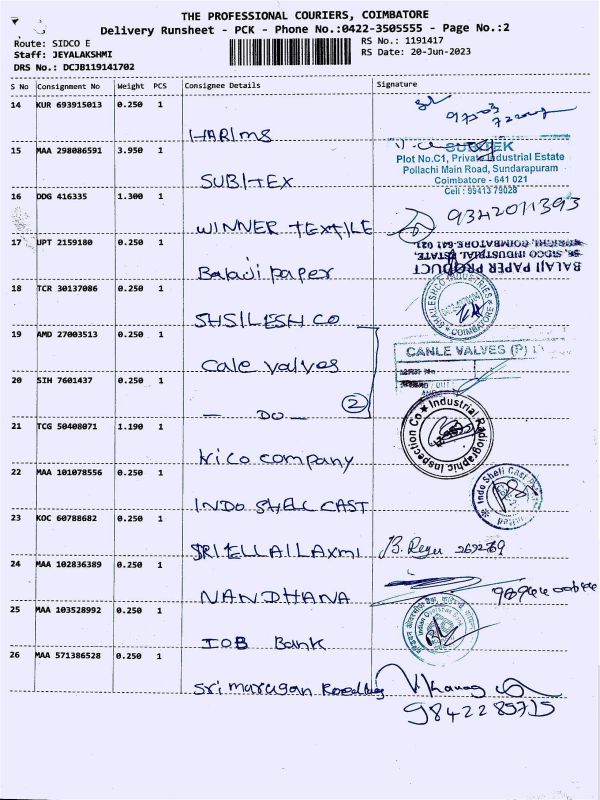 THE PROFESSIONAL COURIERS, COIMBATORE
Delivery Runsheet - PCK - Phone No.:0422-3505555 - Page No.:2
Route: SIDCO E
RS No.: 1191417
Staff: JEYALAKSHMI
RS Date: 20-Jun-2023
DRS No.: DCJB119141702
S No Consignment No Weight PCS Consignee Details Signature
14 KUR 693915013 0.250 1
HARIMS
15 MAA 298086591 3.950 1
SUBITEX
Plot No.C1, Private Industrial Estate
Pollachi Main Road, Sundarapuram
Coimbatore - 641 021
Cell : 99413 79028
16 DDG 416335 1.300 1
WINNER TEXTILE
9342011393
17 UPT 2159180 0.250 1
Balaji paper
BALAJI PAPER PRODUCT
SIDCO INDUSTRIAL ESTATE,
COIMBATORE-641 021
18 TCR 30137086 0.250 1
SHSILESH CO
SHAILESHCO INDUSTRIES
COIMBATORE
19 AMD 27003513 0.250 1
Cale valves
CANLE VALVES (P)
20 SIH 7601437 0.250 1
— DO — 2
21 TCG 50408071 1.190 1
krico company
Industrial Radiographic Inspection Co
22 MAA 101078556 0.250 1
INDO SHELL CAST
Indo Shell Cast
23 KOC 60788682 0.250 1
SRI ELLAI LAXMI
24 MAA 102836389 0.250 1
NANDHANA
25 MAA 103528992 0.250 1
IOB Bank
26 MAA 571386528 0.250 1
Sri murugan
9842285715